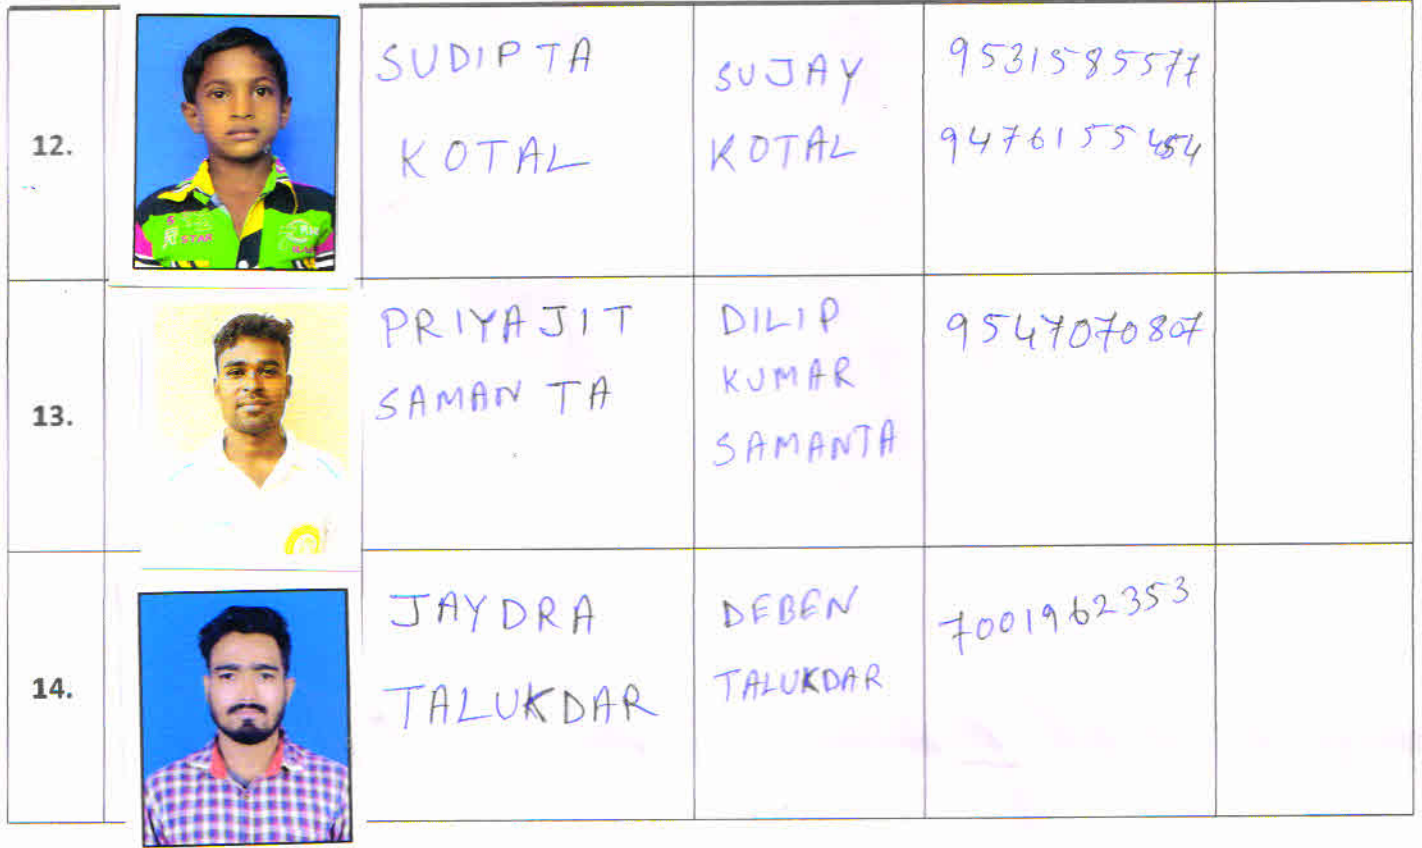 12.
SUDIPTA
KOTAL
SUJAY
KOTAL
9531585577
9476155454
STAR
13.
PRIYAJIT
SAMANTA
DILIP
KUMAR
SAMANTA
9547070807
14.
JAYDRA
TALUKDAR
DEBEN
TALUKDAR
7001962353